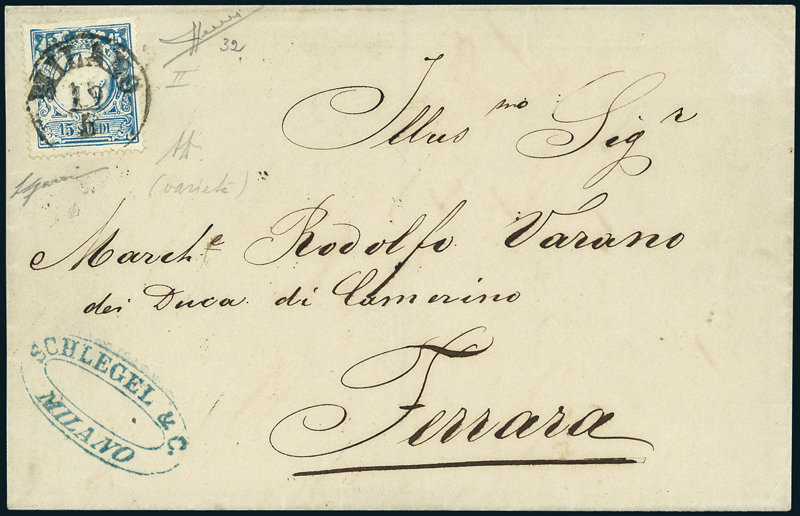 15 15
MILANO
19
15 SOLDI
32
II
(varietà)
Illus mo Sigr
March.e Rodolfo Varano
dei Duca di Camerino
Ferrara
SCHLEGEL & C.
MILANO